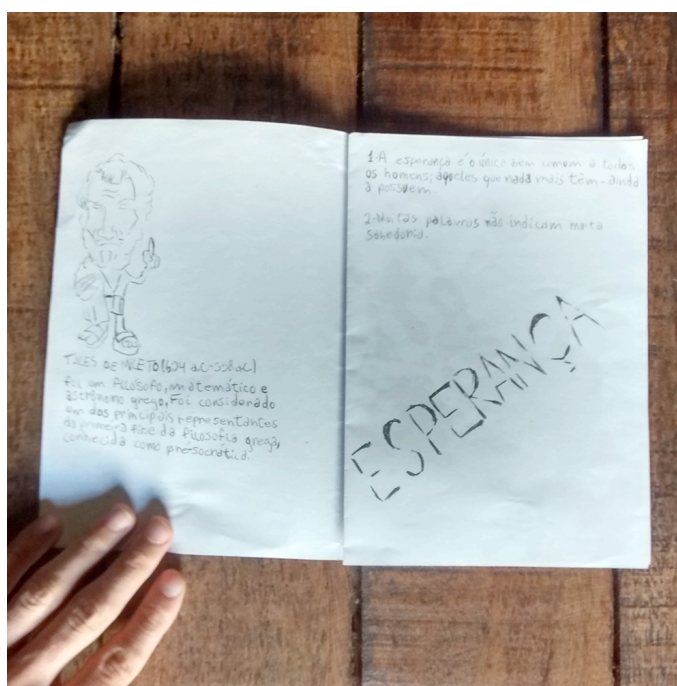 TALES DE MILETO (624 a.C-558 a.C)
foi um filósofo, matemático e
astrônomo grego, Foi considerado
um dos principais representantes
da primeira fase da filosofia grega,
conhecida como pré-socrática.
1-A esperança é o único bem comum a todos
os homens; aqueles que nada mais têm - ainda
a possuem.
2-Muitas palavras não indicam muita
sabedoria.
ESPERANÇA